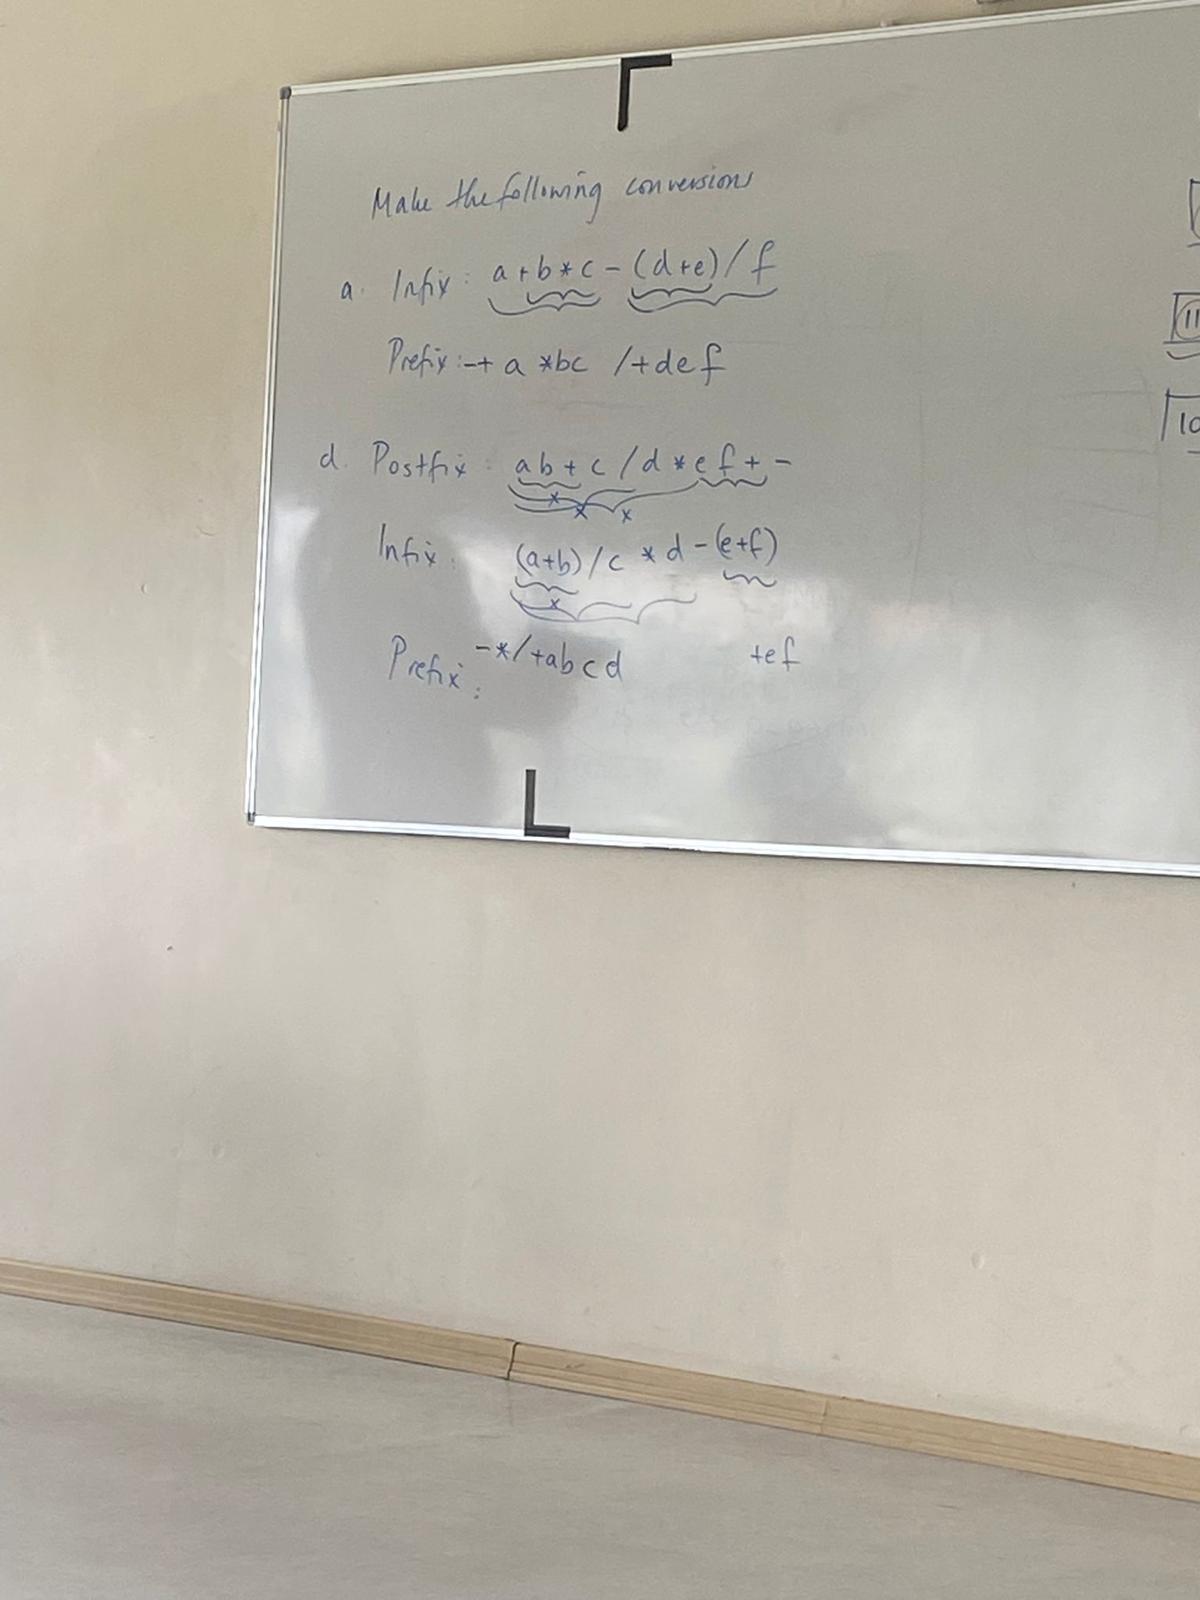 Make the following conversions
a. Infix: a+b*c-(d+e)/f
Prefix:-+ a *bc /+def
d. Postfix: ab+c/d*ef+-
x x x
Infix: (a+b)/c * d-(e+f)
x
Prefix: -*/+abcd +ef
11
10